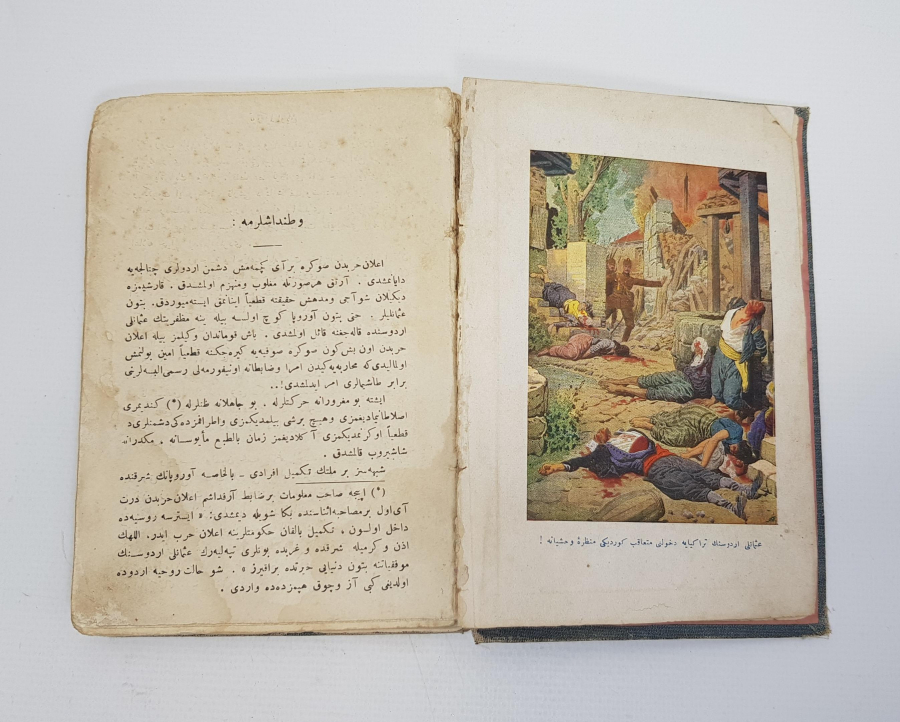 وطنداشلرمه :
اعلان حربدن صوكره بر آی كچمه‌مش دشمن اردولری چتالجه‌یه
دایانمشدی . آرتق هر صورتله مغلوب ومنهزم اولمشدق . قارشیمزه
دیكیلان شو آجی ومدهش حقیقته قطعیاً اینانمق ایسته‌میوردق . بتون
عثمانلیلر . حتی بتون آوروپا كوچ اولسه بیله ینه مظفریتك عثمانلی
اردوسنده قاله‌جغنه قائل اولمشدی . باش قوماندان وكیلمز بیله اعلان
حربدن اون بش كون صوكره صوفیه‌یه كیره‌جكنه قطعیاً امین بولنمش
اولمالیدی كه محاربه‌یه كیدن امرا وضابطانه اونیفورمه‌لی رسمی البسه‌لرینی
برابر طاشیمالری امر ایدلمشدی !..
ایشته بو مغرورانه حركتلرله . بو جاهلانه ظنلرله (*) كندیمزی
اصلا طانیمادیغمزی وهیچ برشی بیلمدیكمزی واطرافمزده‌كی دشمنلری ده
قطعیاً اوكرنمدیكمزی آكلادیغمز زمان بالطبع مأیوسانه . مكدرانه
شاشیروب قالمشدق .
شبهه‌سز بر ملتك تكمیل افرادی ـ بالخاصه آوروپانك شرقنده
(*) ایچه صاحب معلومات بر ضابط آرقداشم اعلان حربدن درت
آی اول بر مصاحبه اثناسنده بكا شویله دیمشدی : « ایسترسه روسیه‌ده
داخل اولسون . تكمیل بالقان حكومتلرینه اعلان حرب ایدر . اللهك
اذن و كرمیله شرقده و غربده بونلری تپه‌لیه‌رك عثمانلی اردوسنك
موفقیاتنه بتون دنیایی حیرتده براقیرز » . شو حالت روحیه اردوده
اولدیغی كبی آز وچوق هپمزده‌ده واردی .
عثمانلی اردوسنك تراكیایه دخولی متعاقب كوردیكی منظرهٔ وحشیانه !